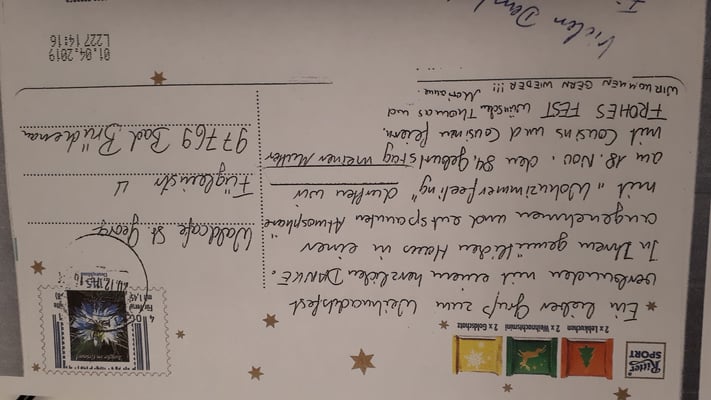 Ritter
SPORT
2 x Lebkuchen 2 x Weihnachtsmini 2 x Goldschatz
Ein lieber Gruß zum Weihnachtsfest
verbunden mit einem herzlichen DANKE.
In Ihrem gemütlichen Haus in einer
angenehmen und entspannten Atmosphäre
mit "Wohnzimmerfeeling" durften wir
am 18. Nov. den 84. Geburtstag meiner Mutter
mit Cousins und Cousinen feiern.
FROHES FEST wünschen Thomas und
Marianne.
WIR KOMMEN GERN WIEDER!!!
Jungfer im Grünen
Deutschland
Waldcafe St. Georg
Füglein str. 4
97769 Bad Brückenau
01.04.2019
L227 14:16
Vielen Dank